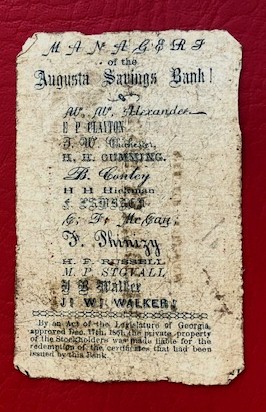 MANAGERS
of the
Augusta Savings Bank!
W. W. Alexander
E P CLAYTON
J. W. Chichester,
H. H. CUMMING.
B. Conley
H H Hickman
F LAMBACK
G; T; McCan;
F. Phinizy
H. F. RUSSELL
M. P. STOVALL
J B Walker
J; W; WALKER,
By an Act of the Legislature of Georgia,
approved Dec. 17th, the private property
of the Stockholders was made liable for the
redemption of the certificates that had been
issued by this Bank.